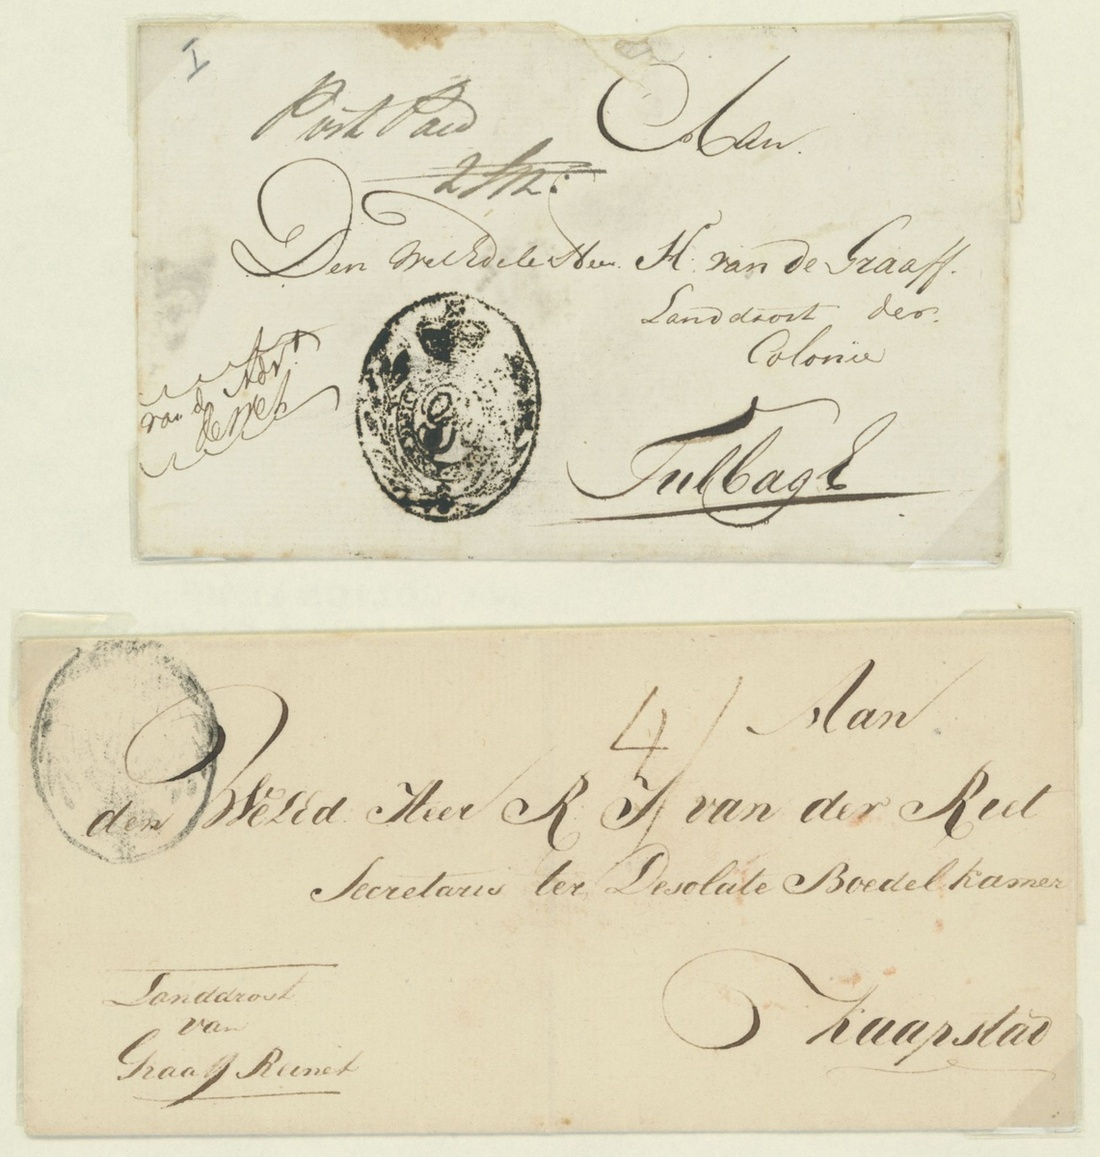 I
Post Paid
Aan.
Den WelEdele Heer H. van de Graaff.
Landdrost der.
Colonie
van de
de Wet
Tulbagh
4/
Aan
den WelEd Heer R. J. van der Riet
Secretaris ter Desolate Boedelkamer
Landdrost
van
Graaff Reinet
Kaapstad